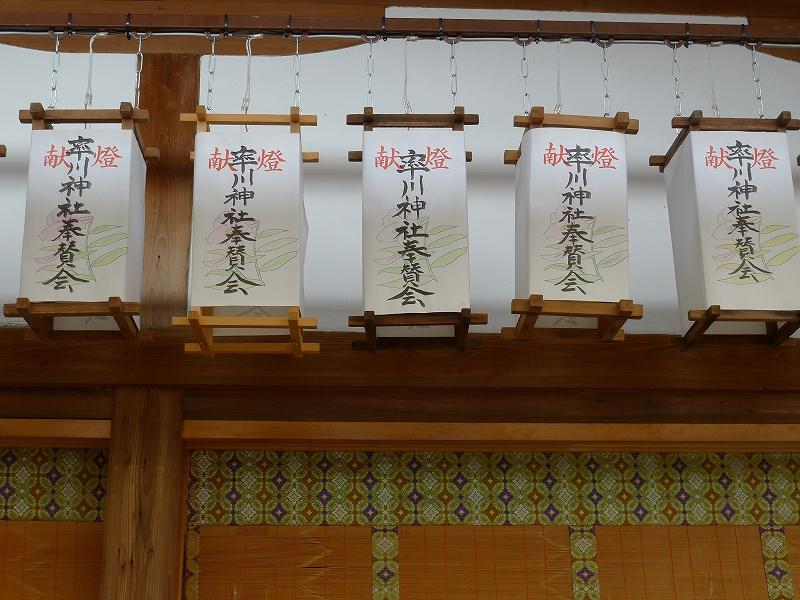 献燈
率川神社奉賛会
献燈
率川神社奉賛会
献燈
率川神社奉賛会
献燈
率川神社奉賛会
献燈
率川神社奉賛会